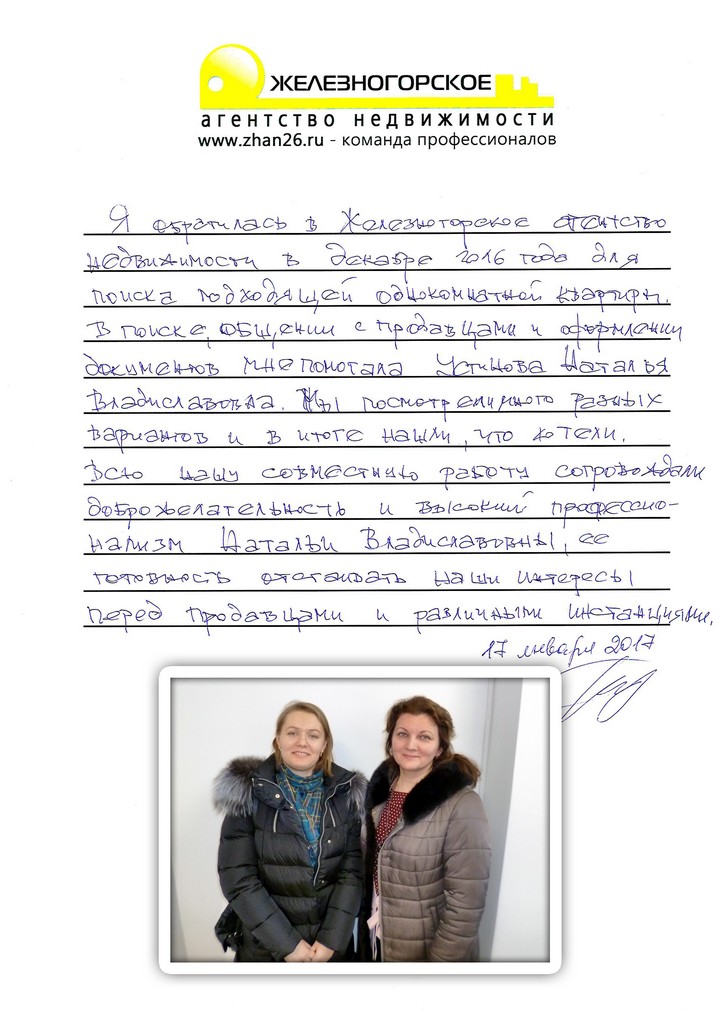 ЖЕЛЕЗНОГОРСКОЕ
агентство недвижимости
www.zhan26.ru - команда профессионалов
Я обратилась в Железногорское агентство
недвижимости в декабре 2016 года для
поиска подходящей однокомнатной квартиры.
В поиске, общении с продавцами и оформлении
документов мне помогала Устинова Наталья
Владиславовна. Мы посмотрели много разных
вариантов и в итоге нашли, что хотели.
Всю нашу совместную работу сопровождали
доброжелательность и высокий профессио-
нализм Натальи Владиславовны, ее
готовность отстаивать наши интересы
перед продавцами и различными инстанциями.
17 января 2017